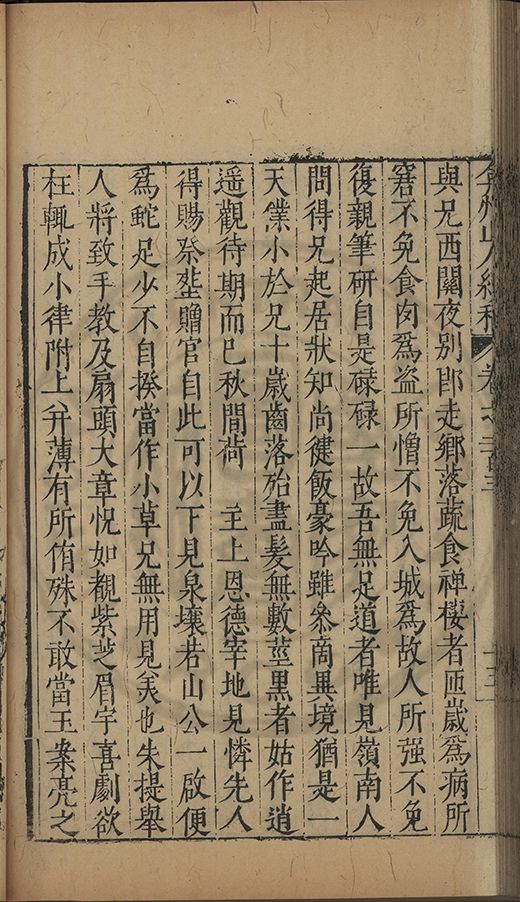 弇州山人續稿 卷之二百三 十三
與兄西關夜別即走鄉落蔬食禪棲者匝歲爲病所
窘不免食肉爲盜所憎不免入城爲故人所强不免
復親筆研自是碌碌一故吾無足道者唯見嶺南人
問得兄起居狀知尚健飯豪吟雖叅商異境猶是一
天業小於兄十歲齒落殆盡髮無數莖黑者姑作逍
遥觀待期而已秋間荷 主上恩德宰地見憐先人
得賜祭塟贈官自此可以下見泉壤若山公一啟便
爲蛇足少不自揆當作小草兄無用見羙也朱提舉
人將致手教及扇頭大章恍如覩紫芝眉宇喜劇欲
狂輙成小律附上幷薄有所侑殊不敢當玉案亮之